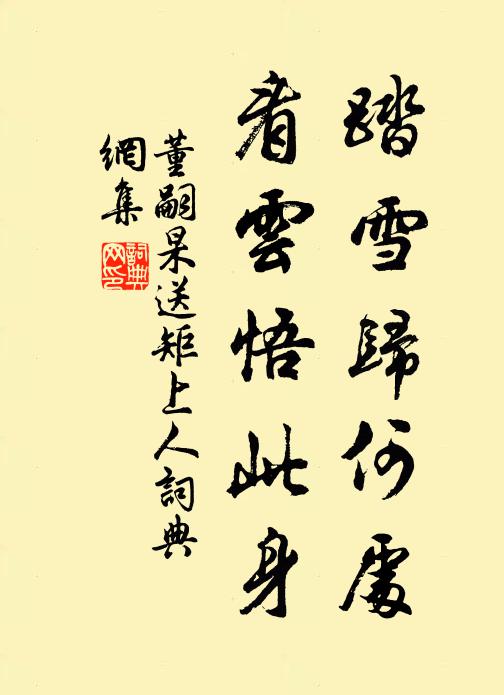 踏雪歸何處
看雲悟此身
董嗣杲送矩上人詞典
網集
詞典
网印